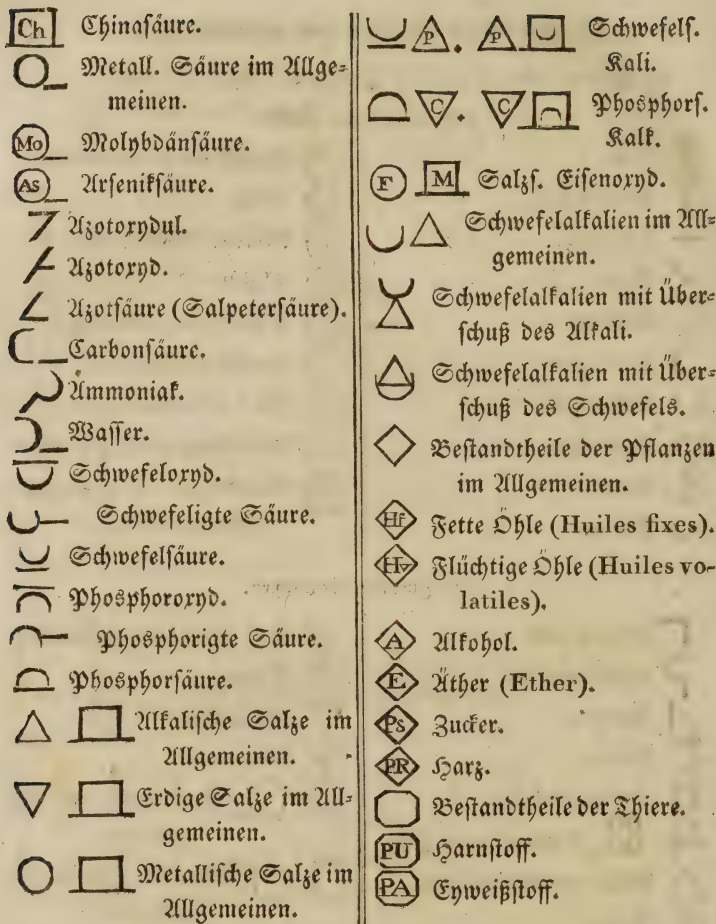 Ch Chinasäure.
Metall. Säure im Allge=
meinen.
Mo Molybdänsäure.
As Arseniksäure.
Azotoxydul.
Azotoxyd.
Azotsäure (Salpetersäure).
Carbonsäure.
Ammoniak.
Wasser.
Schwefeloxyd.
Schwefeligte Säure.
Schwefelsäure.
Phosphoroxyd.
Phosphorigte Säure.
Phosphorsäure.
Alkalische Salze im
Allgemeinen.
Erdige Salze im All=
gemeinen.
Metallische Salze im
Allgemeinen.
P. P Schwefels.
Kali.
C. C Phosphors.
Kalk.
F M Salzs. Eisenoxyd.
Schwefelalkalien im All=
gemeinen.
Schwefelalkalien mit Über=
schuß des Alkali.
Schwefelalkalien mit Über=
schuß des Schwefels.
Bestandtheile der Pflanzen
im Allgemeinen.
Hf Fette Öhle (Huiles fixes).
Hv Flüchtige Öhle (Huiles vo-
latiles).
A Alkohol.
E Äther (Ether).
Ps Zucker.
PR Harz.
Bestandtheile der Thiere.
PU Harnstoff.
PA Eyweißstoff.